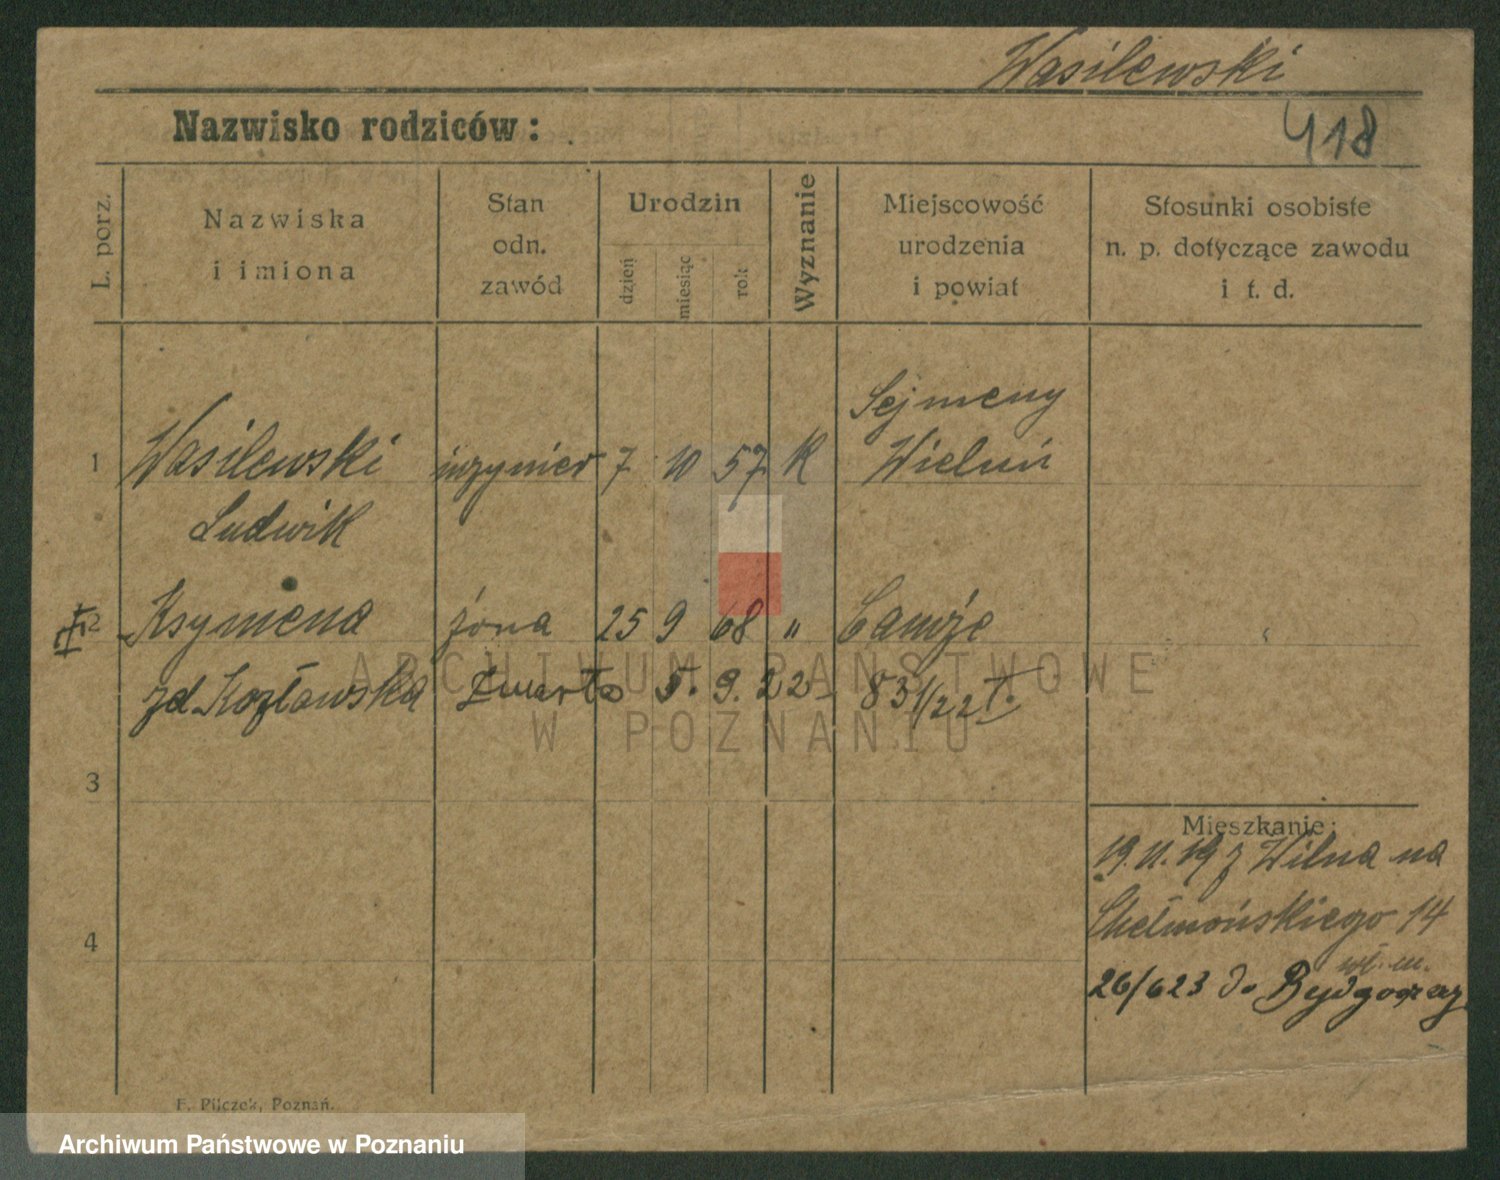 Wasilewski
418
Nazwisko rodziców:
L. porz.
Nazwiska
i imiona
Stan
odn.
zawód
Urodzin
dzień
miesiąc
rok
Wyznanie
Miejscowość
urodzenia
i powiat
Stosunki osobiste
n. p. dotyczące zawodu
i t. d.
Sejmeny
1 Wasilewski inżynier 7 10 57 K Wieluń
Ludwik
2 Ksymena żona 25 9 68 "
zd. Kozłowska Zmarła 5. 9. 22 831/22 T.
ARCHIWUM PAŃSTWOWE
W POZNANIU
3
Mieszkanie:
19.11.19 z Wilna na
Chełmońskiego 14
4
26/6 23 do Bydgoszczy
F. Pilczek, Poznań.
Archiwum Państwowe w Poznaniu